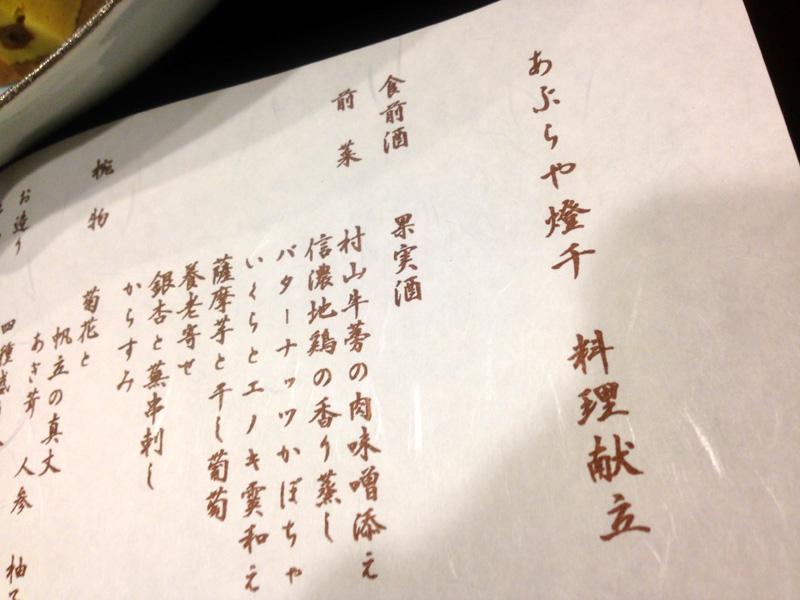 あぶらや燈千 料理献立
食前酒 果実酒
前菜 村山牛蒡の肉味噌添え
信濃地鶏の香り蒸し
バターナッツかぼちゃ
いくらとエノキ霙和え
薩摩芋と干し葡萄
養老寄せ
銀杏と蕪串刺し
からすみ
椀物 菊花と
帆立の真丈
あさ芽 人参 柚子
お造り 四種盛り